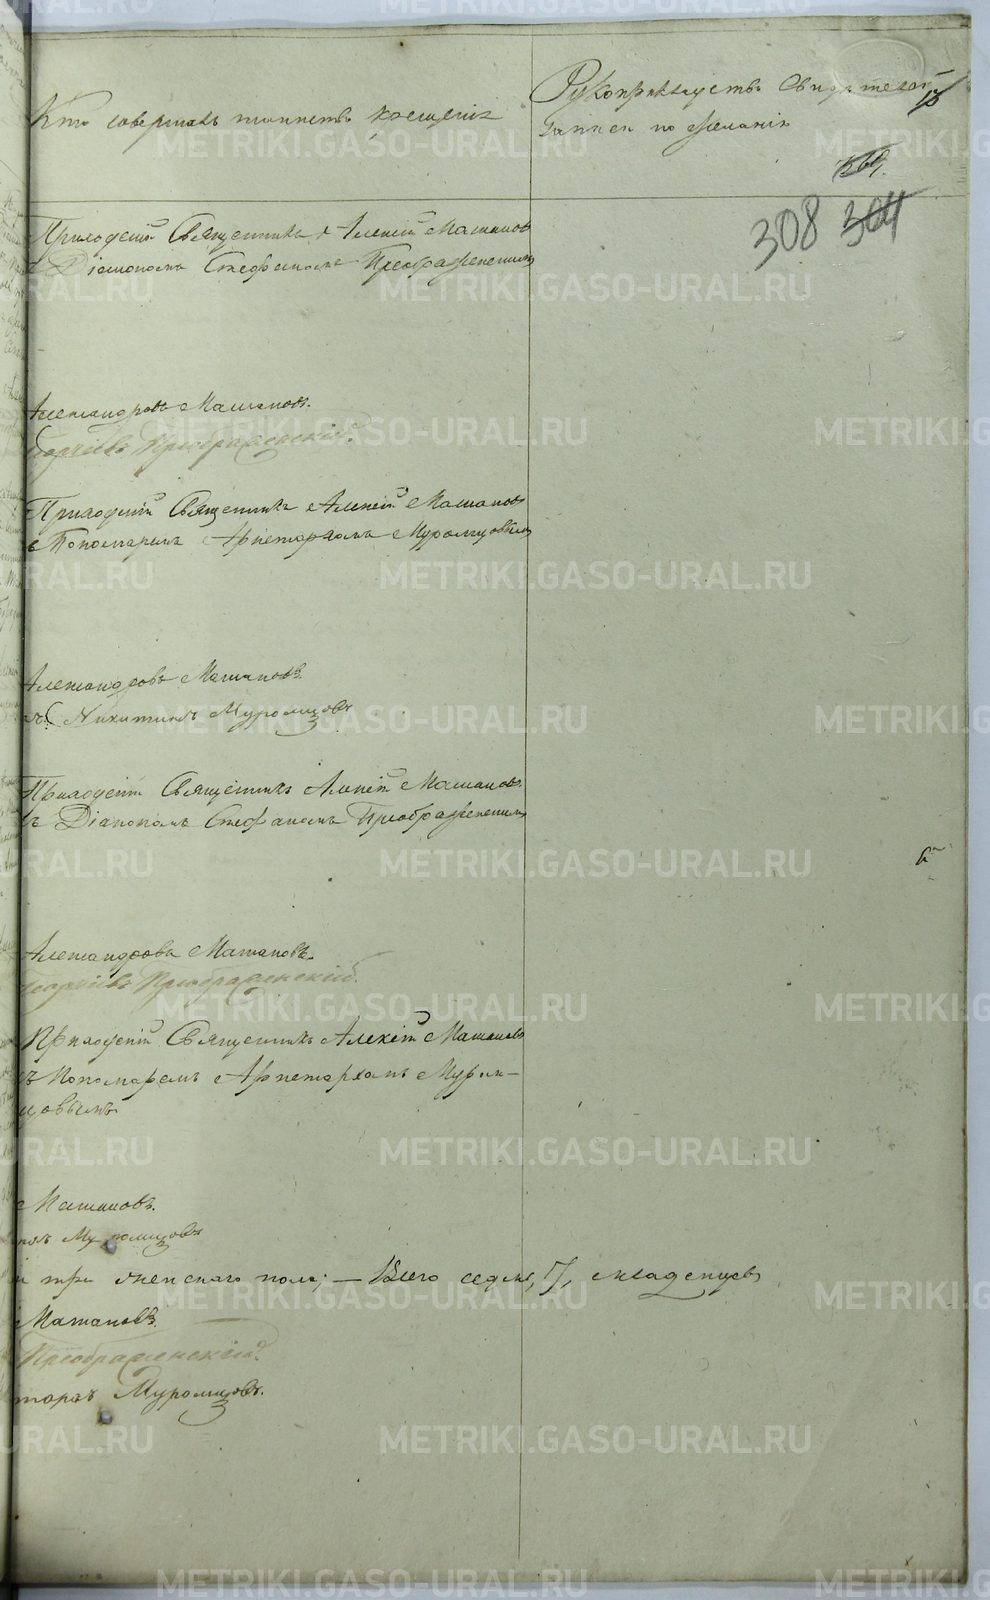 Кто совершалъ таинство крещенія
Рукоприкладство свидѣтелей
записи по желанію
308 304
Приходскій Священникъ Алексій Машановъ
съ Діакономъ Стефаномъ Преображенскимъ
Александровъ Машановъ.
Георгіевъ Преображенскій.
Приходскій Священникъ Алексій Машановъ
съ Пономаремъ Аристархомъ Муромцовымъ
Александровъ Машановъ.
Никитинъ Муромцовъ
Приходскій Священникъ Алексій Машановъ.
съ Діакономъ Стефаномъ Преображенскимъ
Александровъ Машановъ.
Георгіевъ Преображенскій.
Приходскій Священникъ Алексій Машановъ
съ Пономаремъ Аристархомъ Муром-
цовымъ
Машановъ.
Муромцовъ
и три женскаго пола; — Всего седмь, 7, младенцевъ
Машановъ.
Преображенскій.
Муромцовъ.
METRIKI.GASO-URAL.RU